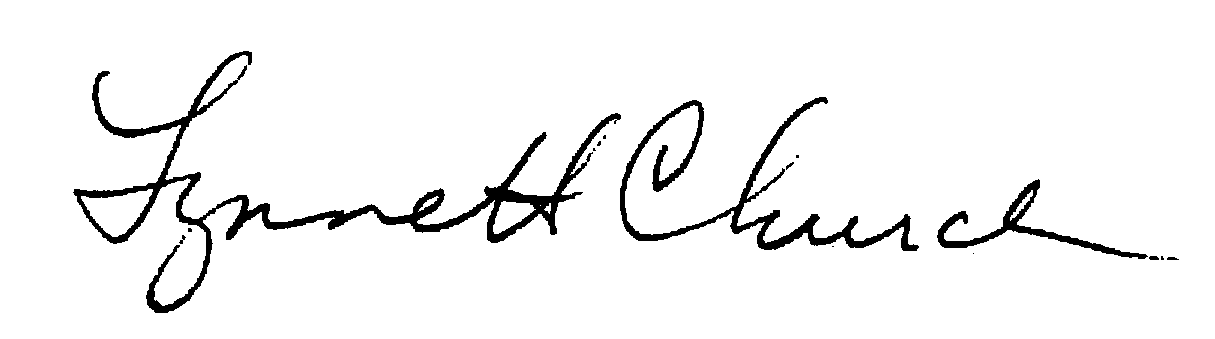 Lynnett Church